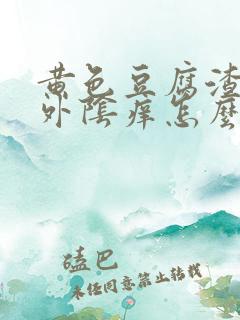 黄色豆腐渣
外陰痒怎麽
嗑巴
未经同意禁止转载